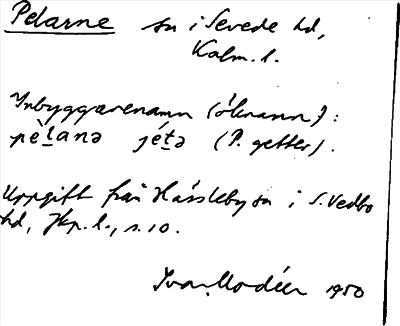 Pelarne sn i Sevede hd,
Kalm. l.
Inbyggarenamn (öknamn):
pèlanə jétə (P. getter).
Uppgift från Hässleby sn i S. Vedbo
hd, Jkp. l., s. 10.
Ivar Modéer 1950